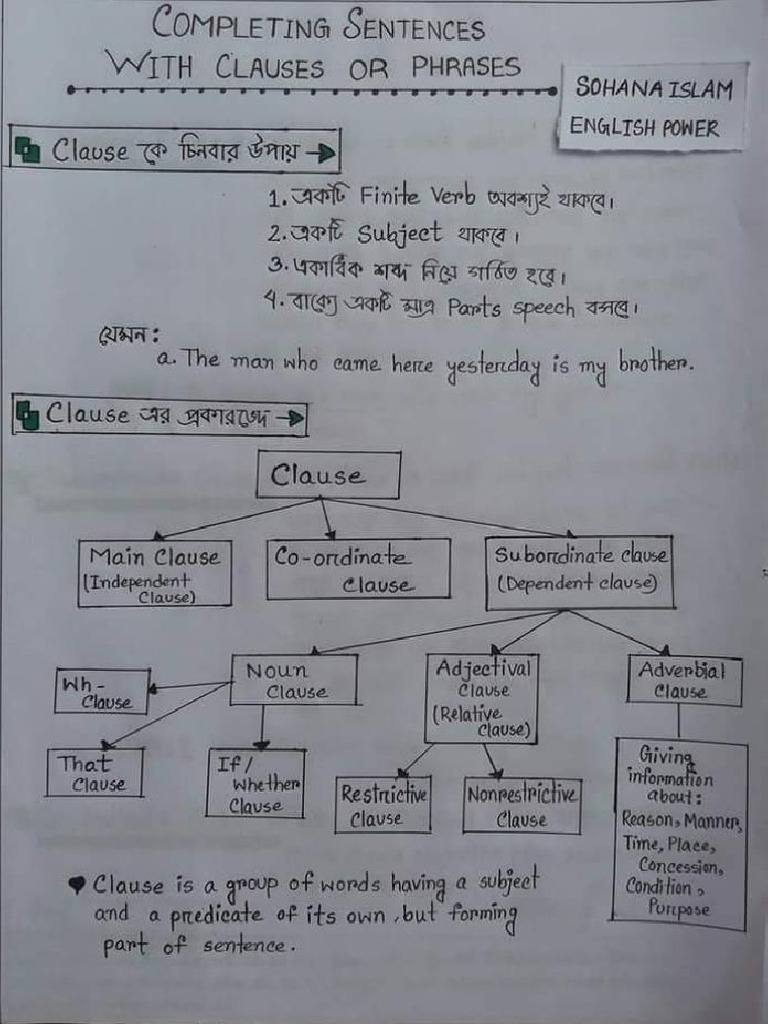 COMPLETING SENTENCES
WITH CLAUSES OR PHRASES
SOHANA ISLAM
ENGLISH POWER
Clause কে চিনবার উপায়
1. একটি Finite Verb অবশ্যই থাকবে।
2. একটি Subject থাকবে।
3. একাধিক শব্দ নিয়ে গঠিত হবে।
4. বাক্যে একটি মাত্র Parts speech বসবে।
যেমন:
a. The man who came here yesterday is my brother.
Clause এর প্রকারভেদ
Clause
Main Clause
(Independent
Clause)
Co-ordinate
Clause
Subordinate clause
(Dependent clause)
Noun
Clause
Adjectival
Clause
(Relative
Clause)
Adverbial
Clause
Wh-
Clause
That
Clause
If/
Whether
Clause
Restrictive
Clause
Nonrestrictive
Clause
Giving
information
about:
Reason, Manner,
Time, Place,
Concession,
Condition,
Purpose
Clause is a group of words having a subject
and a predicate of its own, but forming
part of sentence.